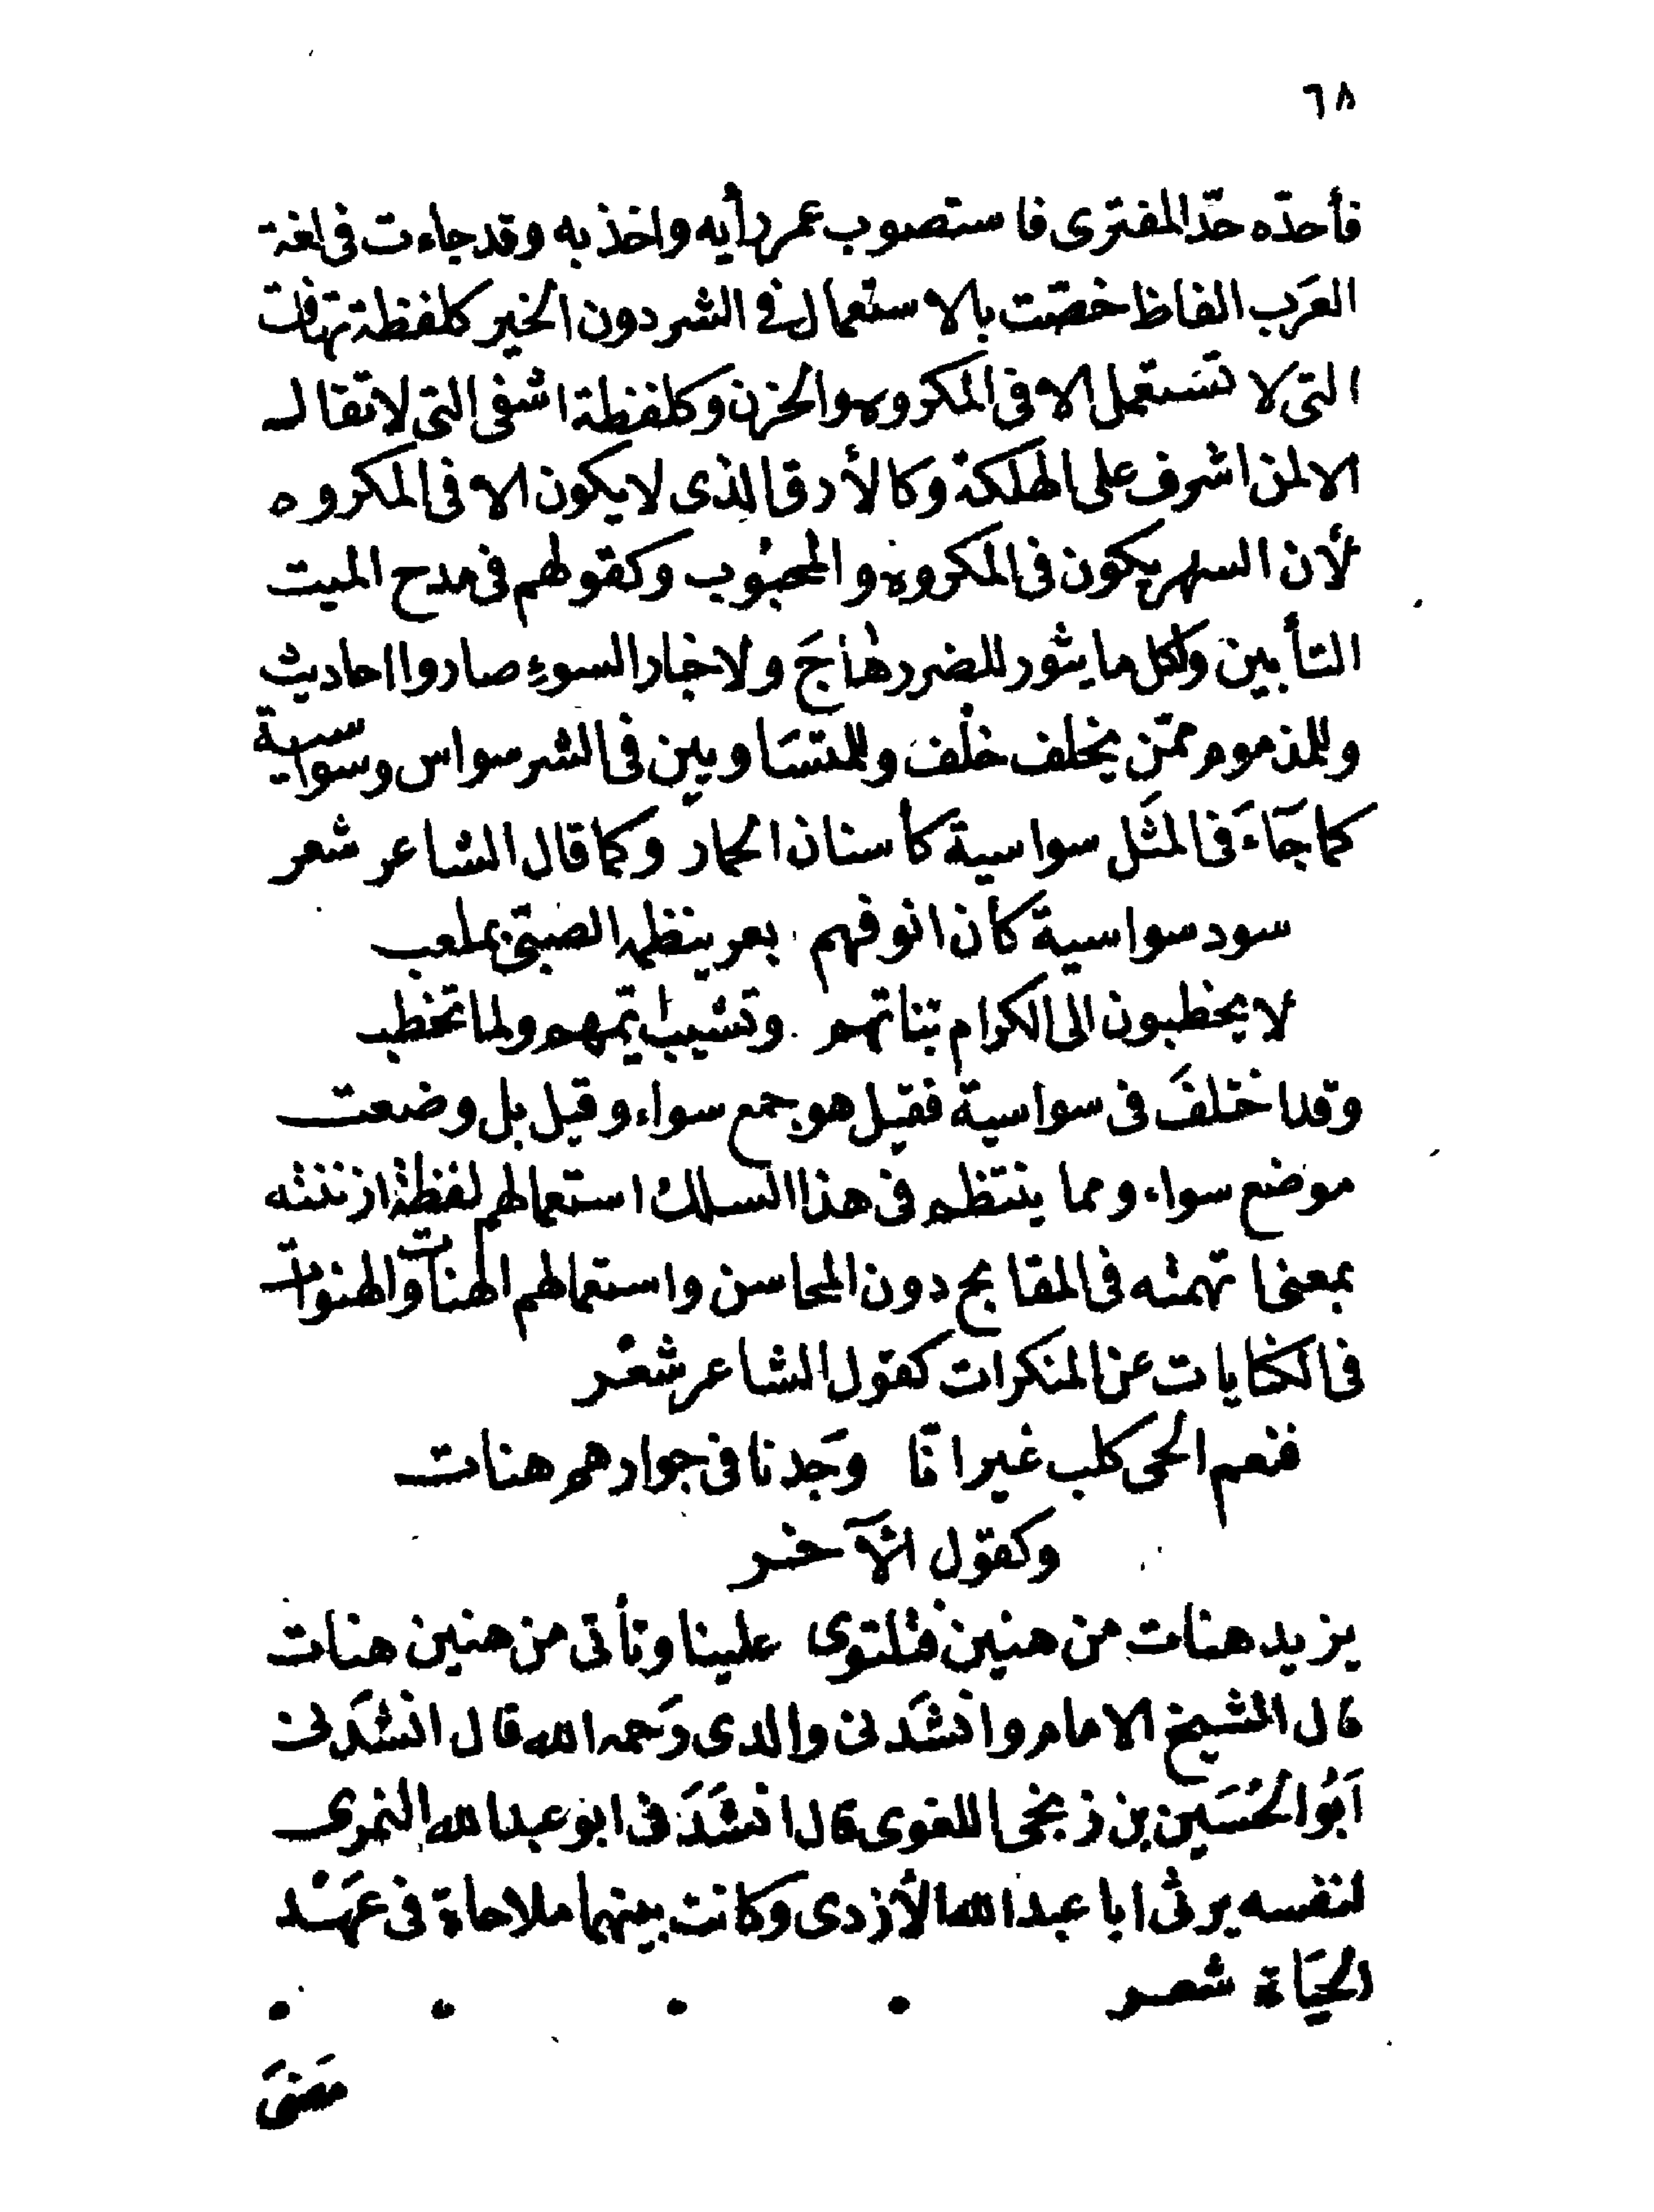 ٦٨
فأحدّه حدّ المفترى فاستصوب عمر رأيه واخذ به وقد جاءت فى لغة
العرَب الفاظ خصّت بالاستعمال فى الشر دون الخير كلفظة تهافت
التى لا تستعمل الا فى المكروه والحزن وكلفظة اشفى التى لا تقال
الا لمن اشرف على الهلكة وكالأرق الذى لا يكون الا فى المكروه
لأن السهر يكون فى المكروه والمحبُوب وكقولهم فى مدح الميت
التأبين ولكل ما يثور للضرر هَاجَ ولاخبار السوءِ صاروا احاديث
وللمذموم ممّن يخلف خلْف وللمتسَاويين فى الشر سواس وسواسية
كما جَاءَ فى المثَل سواسية كأسنان الحمار وكما قال الشاعر شعر
سود سواسية كأن انوفهم بعر ينظمه الصّبىّ بملعب
لا يخطبون الى الكرام بناتهم وتشيب ايّمهم ولما تخطب
وقد اختلفَ فى سواسية فقيل هو جمع سواء وقيل بل وضعت
موضع سواء ومما ينتظم فى هذا السلك استعمالهم لفظة ازننته
بمعنى اتهمته فى المقابح دون المحاسن واستعمالهم الهنات والهنوات
فى الكنايات عن المنكرات كقول الشاعر شعْر
فنعم الحى كلب غير انّا وجَدنا فى جوارهم هنات
وكقول الآخر
يزيد هنات من هنين فتلتوى علينا وتأتى من هنين هنات
قال الشيخ الامام وانشدَنى والدى رَحمه الله قال انشدَنى
اَبُو الحُسَين بن زنجى اللغوى قال انشَدَنى ابو عبد الله النمرى
لنفسه يرثى ابا عبد الله الأزدى وكانت بينهما ملاحاة فى عَهْد
الحيَاة شعر
مضىَ